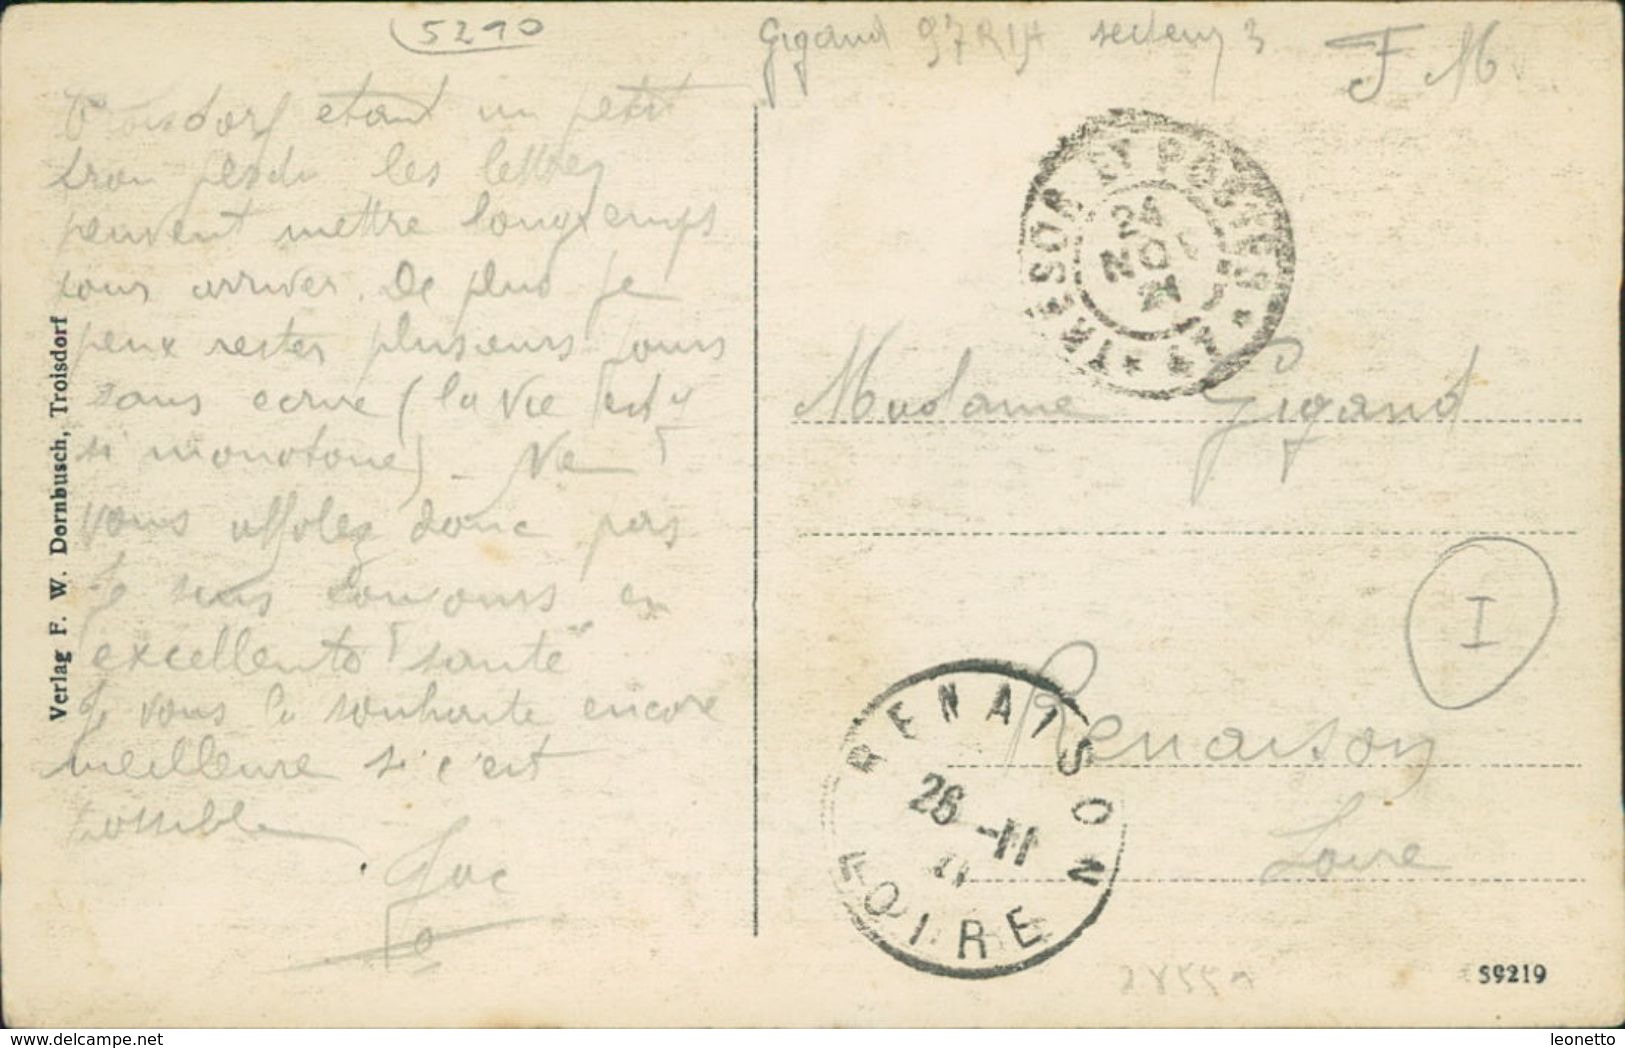 5290
Gigand 97 RIA secteur 3
F M
Troisdorf étant un petit
trou perdu les lettres
peuvent mettre longtemps
pour arriver. De plus je
peux rester plusieurs jours
sans ecrire (la vie est
si monotone) - Ne
vous affolez donc pas
Je suis toujours en
excellente santé
Je vous la souhaite encore
meilleure si c'est
possible
Verlag F. W. Dornbusch, Troisdorf
TRESOR ET POSTES
24
NOV
21
Madame Gigand
I
Renaison
Loire
RENAISON
26 -11
21
LOIRE
59219
www.delcampe.net
leonetto